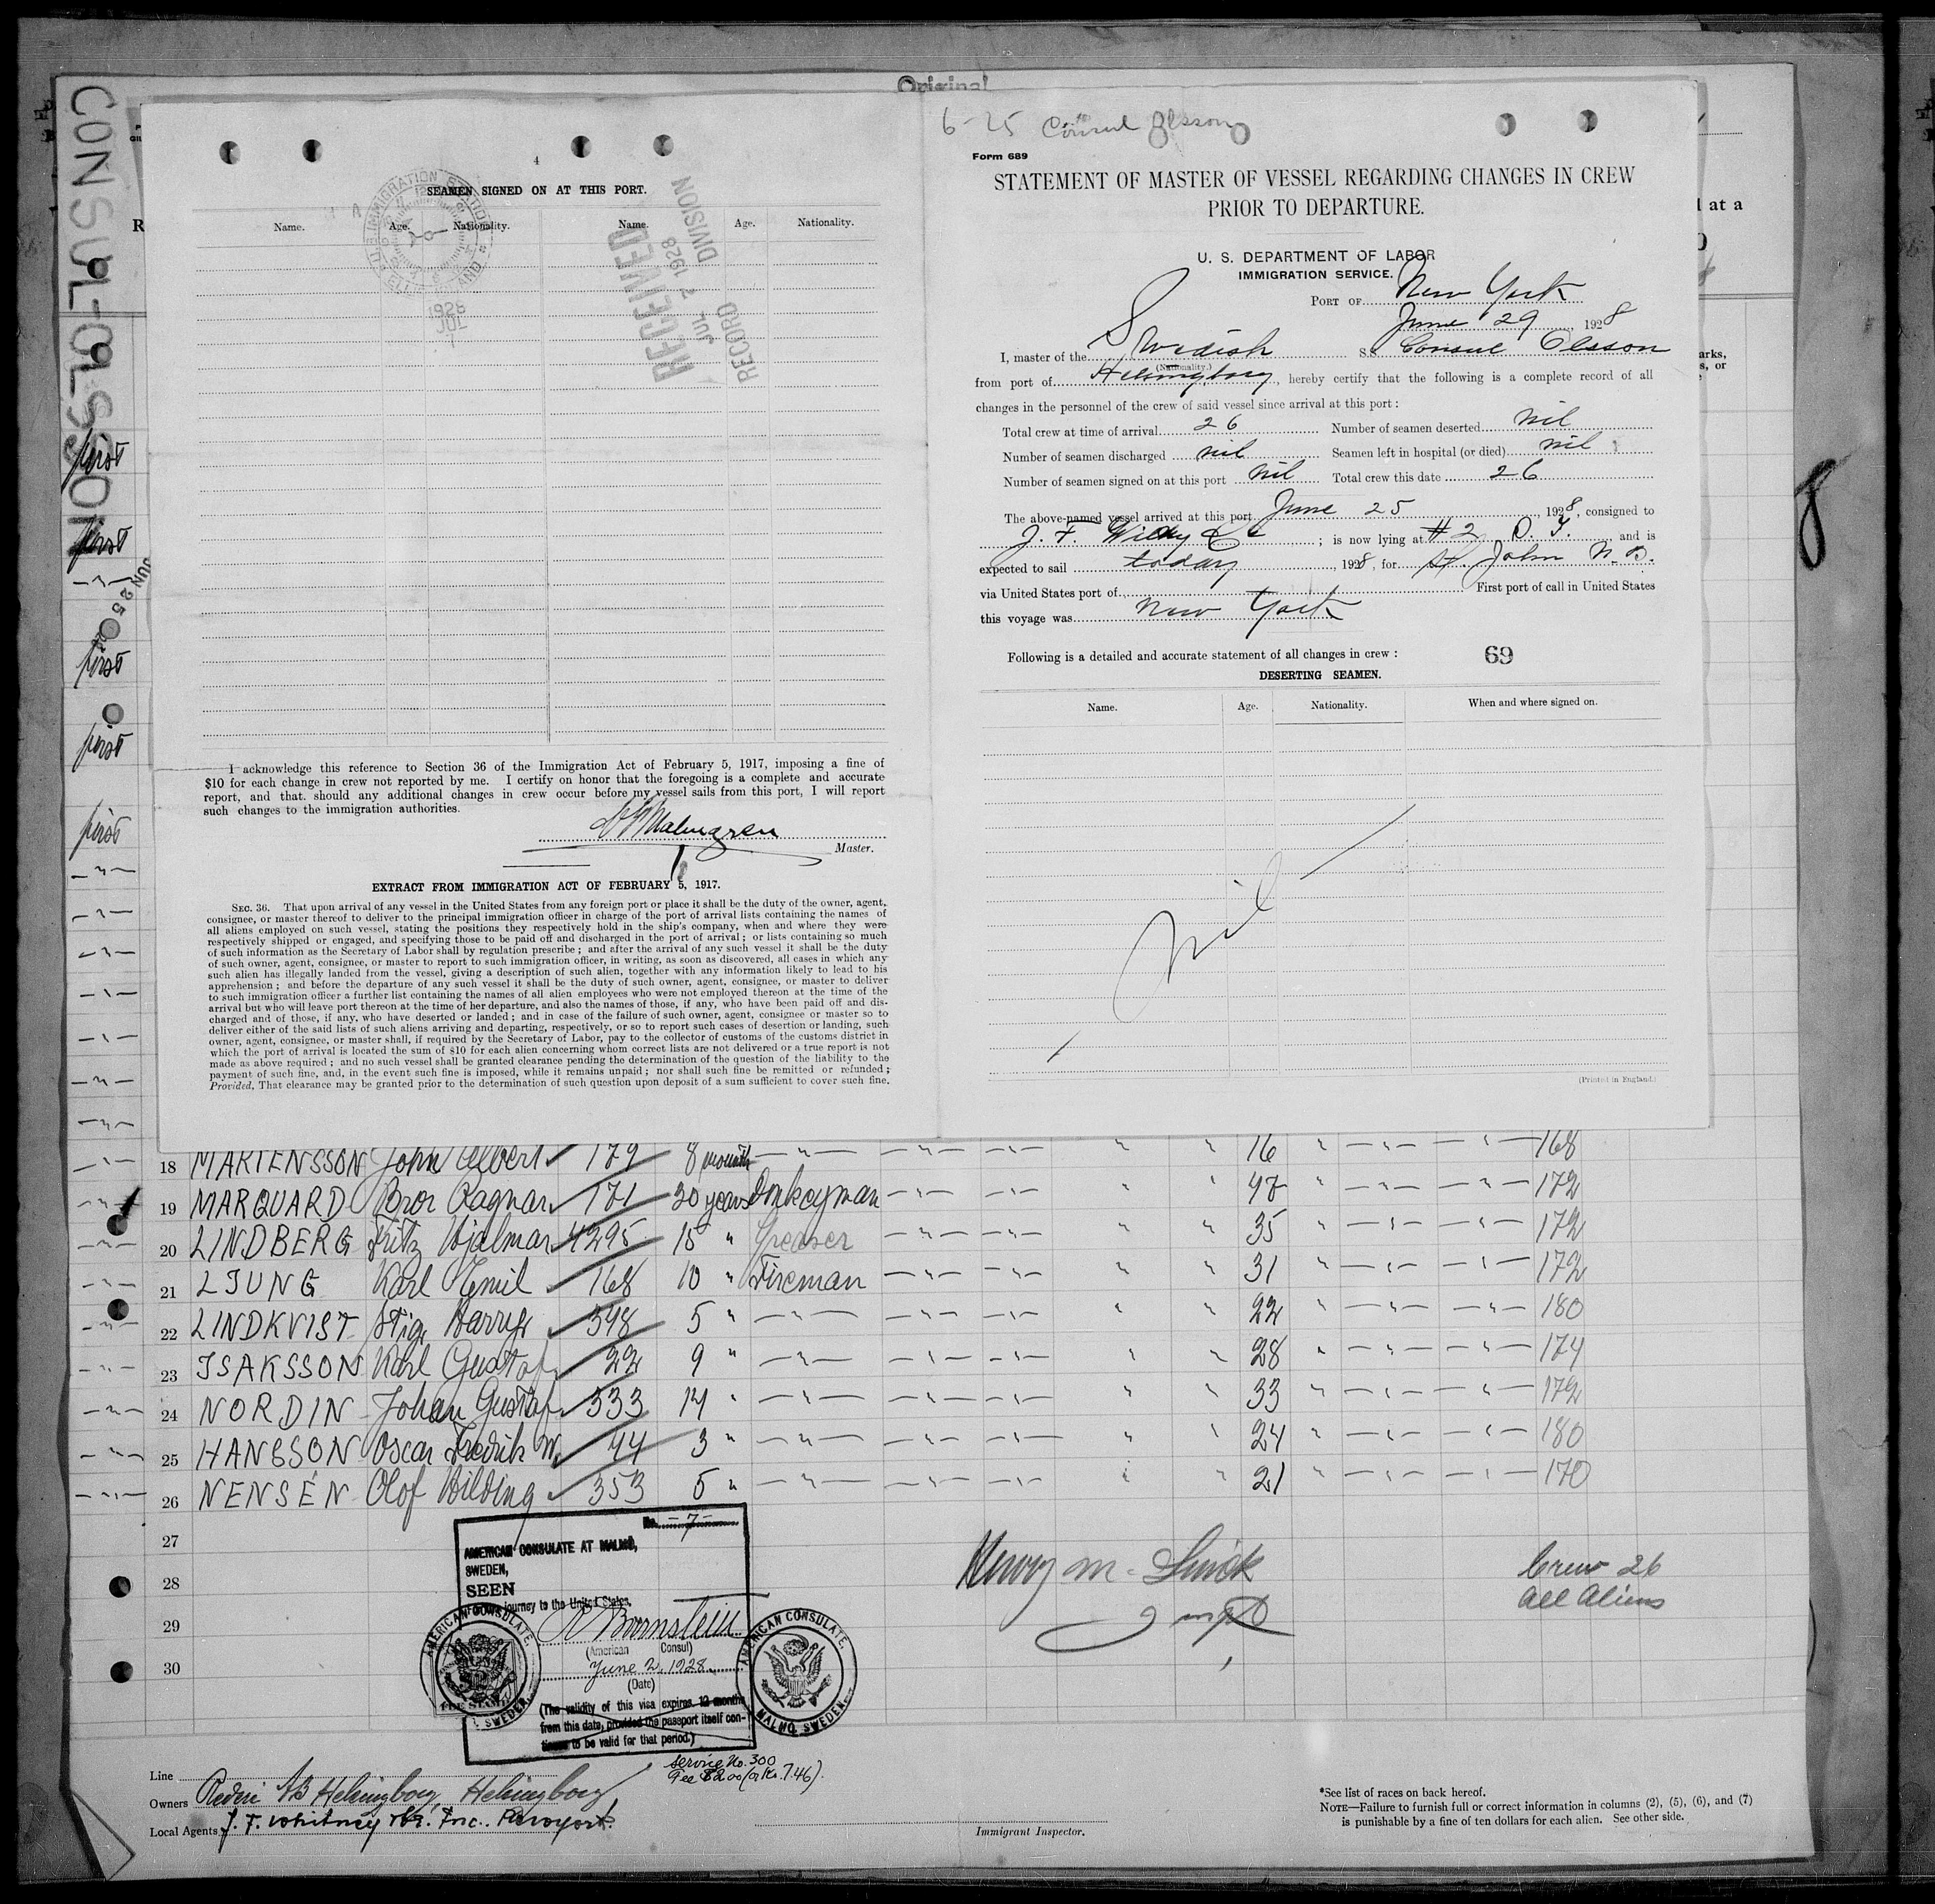 Original
CONSUL-OLSSON
CONSUL-OLSSON
first
first
JUN 25
first
first
first
4
SEAMEN SIGNED ON AT THIS PORT.
Name. Age. Nationality. Name. Age. Nationality.
U.S. IMMIGRATION STATION
1928
JUL
1
RECEIVED
JUL 2 1928
RECORD DIVISION
I acknowledge this reference to Section 36 of the Immigration Act of February 5, 1917, imposing a fine of
$10 for each change in crew not reported by me. I certify on honor that the foregoing is a complete and accurate
report, and that. should any additional changes in crew occur before my vessel sails from this port, I will report
such changes to the immigration authorities.
Malmgren
Master.
EXTRACT FROM IMMIGRATION ACT OF FEBRUARY 5, 1917.
SEC. 36. That upon arrival of any vessel in the United States from any foreign port or place it shall be the duty of the owner, agent,
consignee, or master thereof to deliver to the principal immigration officer in charge of the port of arrival lists containing the names of
all aliens employed on such vessel, stating the positions they respectively hold in the ship's company, when and where they were
respectively shipped or engaged, and specifying those to be paid off and discharged in the port of arrival; or lists containing so much
of such information as the Secretary of Labor shall by regulation prescribe; and after the arrival of any such vessel it shall be the duty
of such owner, agent, consignee, or master to report to such immigration officer, in writing, as soon as discovered, all cases in which any
such alien has illegally landed from the vessel, giving a description of such alien, together with any information likely to lead to his
apprehension; and before the departure of any such vessel it shall be the duty of such owner, agent, consignee, or master to deliver
to such immigration officer a further list containing the names of all alien employees who were not employed thereon at the time of the
arrival but who will leave port thereon at the time of her departure, and also the names of those, if any, who have been paid off and dis-
charged and of those, if any, who have deserted or landed; and in case of the failure of such owner, agent, consignee or master so to
deliver either of the said lists of such aliens arriving and departing, respectively, or so to report such cases of desertion or landing, such
owner, agent, consignee, or master shall, if required by the Secretary of Labor, pay to the collector of customs of the customs district in
which the port of arrival is located the sum of $10 for each alien concerning whom correct lists are not delivered or a true report is not
made as above required; and no such vessel shall be granted clearance pending the determination of the question of the liability to the
payment of such fine, and, in the event such fine is imposed, while it remains unpaid; nor shall such fine be remitted or refunded;
Provided, That clearance may be granted prior to the determination of such question upon deposit of a sum sufficient to cover such fine.
6-25 Consul Olsson
Form 689
STATEMENT OF MASTER OF VESSEL REGARDING CHANGES IN CREW
PRIOR TO DEPARTURE.
U. S. DEPARTMENT OF LABOR
IMMIGRATION SERVICE.
PORT OF New York
June 29, 1928
I, master of the Swedish S.S. Consul Olsson
(Nationality.)
from port of Helsingborg, hereby certify that the following is a complete record of all
changes in the personnel of the crew of said vessel since arrival at this port:
Total crew at time of arrival 26 Number of seamen deserted nil
Number of seamen discharged nil Seamen left in hospital (or died) nil
Number of seamen signed on at this port nil Total crew this date 26
The above-named vessel arrived at this port June 25, 1928, consigned to
J. F. ; is now lying at #2 D. , and is
expected to sail today, 1928, for St. John N.B.
via United States port of First port of call in United States
this voyage was New York
Following is a detailed and accurate statement of all changes in crew: 69
DESERTING SEAMEN.
Name. Age. Nationality. When and where signed on.
nil
(Printed in England.)
d at a
arks,
s, or
8
18 MARTENSSON John Albert 179 8 month 16 168
19 MARQUARD Bror Ragnar 171 30 years Donkeyman " " 47 " 172
20 LINDBERG Fritz Hjalmar 4295 15 " Greaser " " 35 " 172
21 LJUNG Karl Emil 168 10 " Fireman " " 31 " 172
22 LINDKVIST Stig Harry 598 5 " " " 22 " 180
23 ISAKSSON Karl Gustaf 22 9 " " " 28 " 174
24 NORDIN Johan Gustaf 333 14 " " " 33 " 172
25 HANSSON Oscar Fredrik W. 44 3 " " " 24 " 180
26 NENSÉN Olof Hilding 353 5 " " " 21 " 170
27
28
29
30
No. -7-
AMERICAN CONSULATE AT MALMÖ,
SWEDEN,
SEEN
For the journey to the United States.
R Bornstein
(American Consul)
June 2, 1928
(Date)
(The validity of this visa expires 12 months
from this date, provided the passport itself con-
tinues to be valid for that period.)
AMERICAN CONSULATE. SWEDEN.
AMERICAN CONSULATE. MALMÖ, SWEDEN.
Service No. 300
Fee $2.00 (a Kr. 7.46).
Crew 26
All Aliens
Line
Owners Rederi AB Helsingborg, Helsingborg
Local Agents J. F. Whitney & Co. Inc. New york.
Immigrant Inspector.
*See list of races on back hereof.
NOTE—Failure to furnish full or correct information in columns (2), (5), (6), and (7)
is punishable by a fine of ten dollars for each alien. See other side.